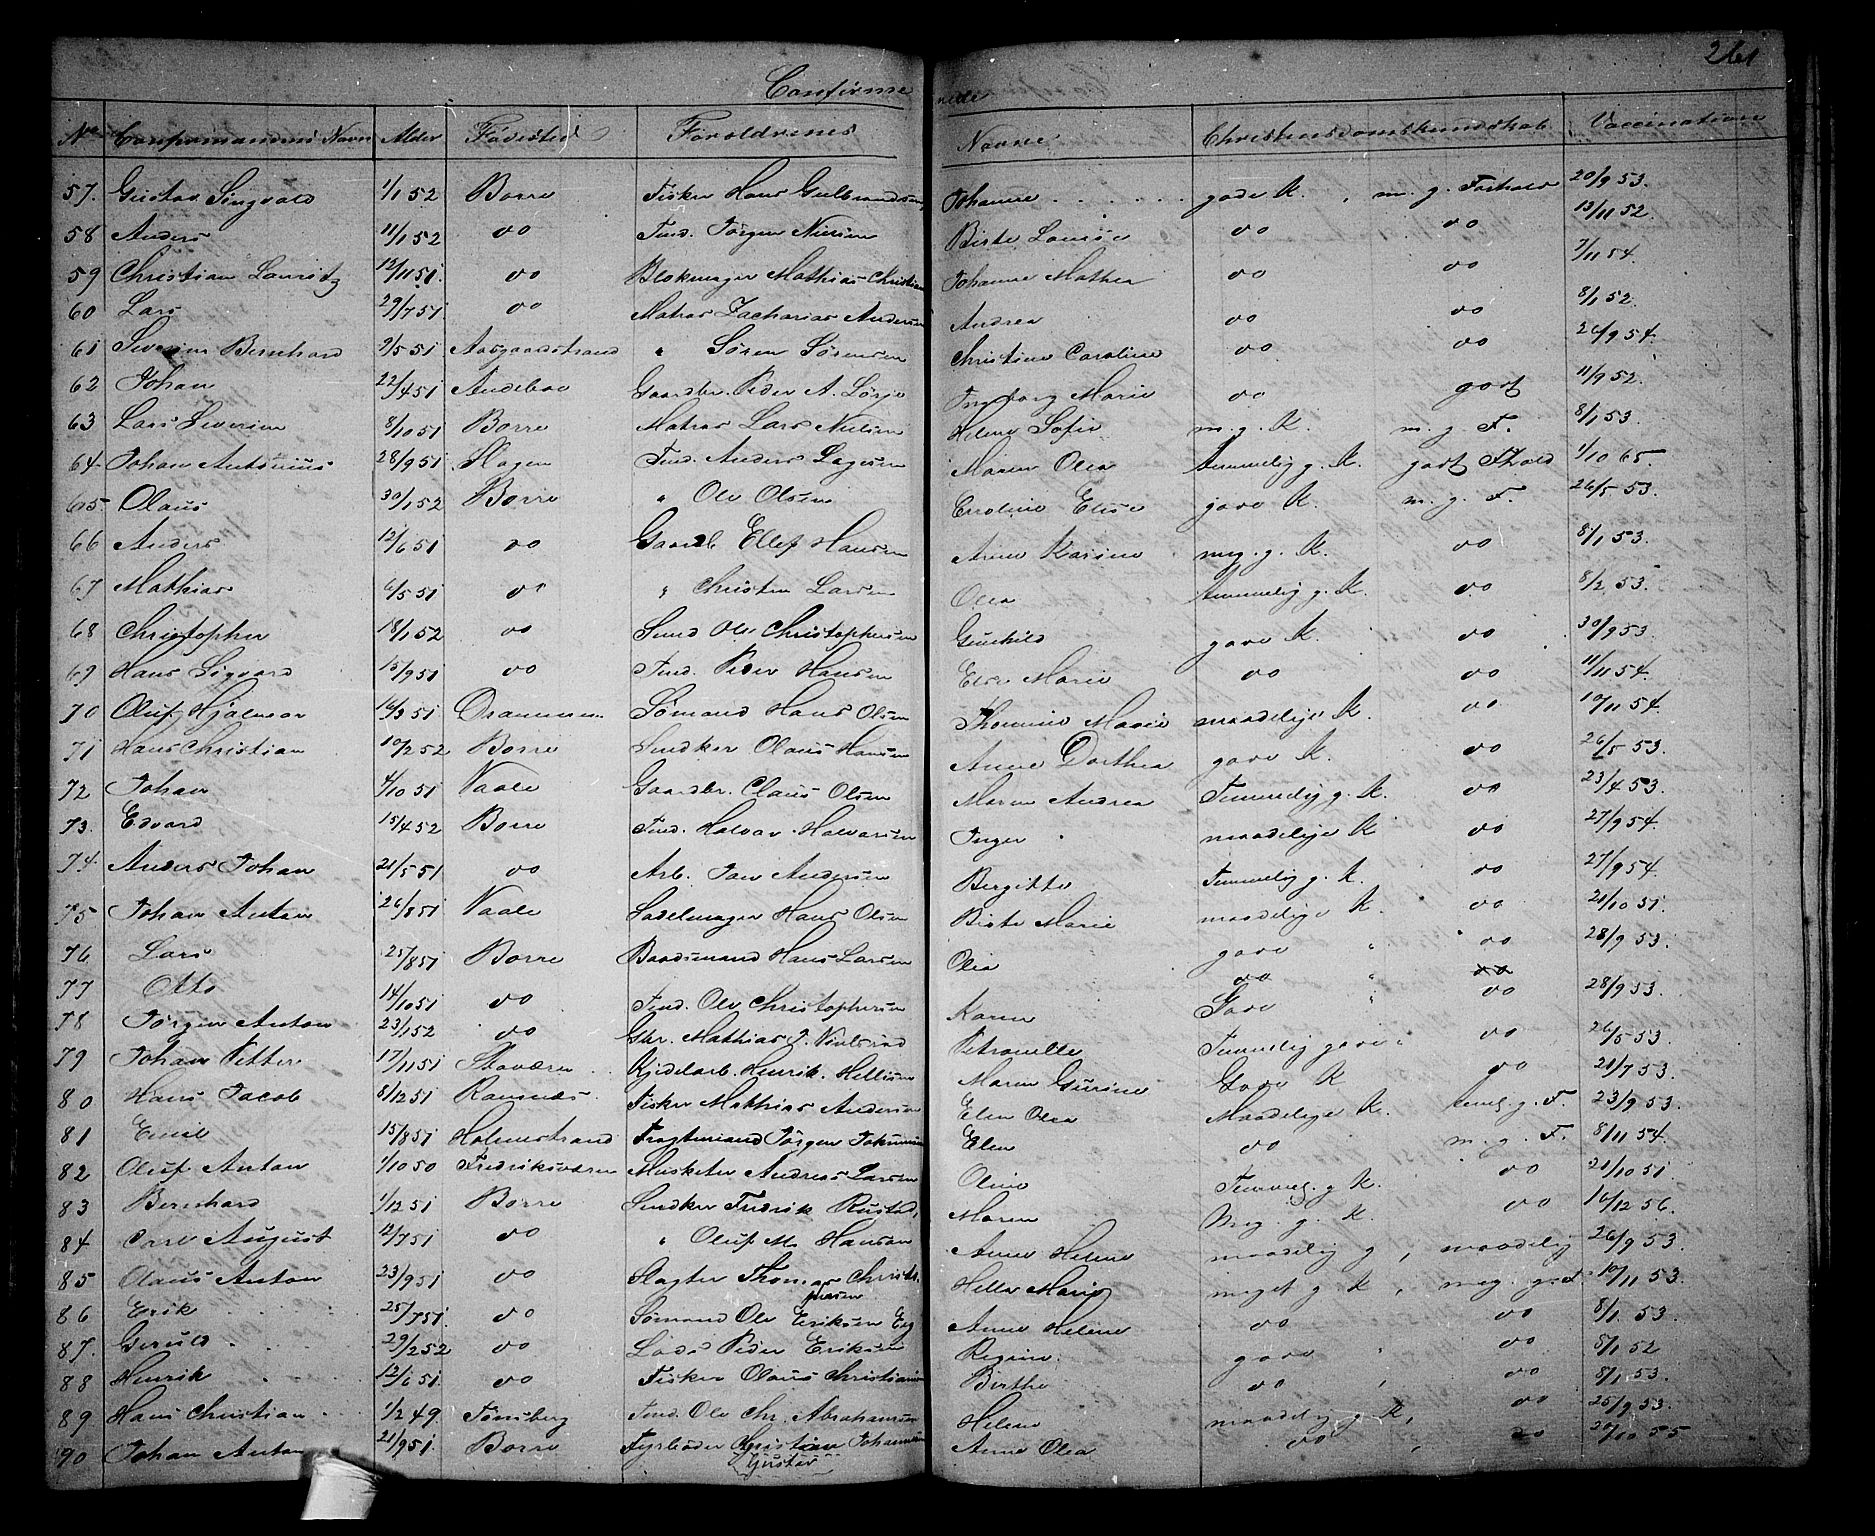 261
Confirmerede
No Confirmandens Navn Alder Fødested Forældrenes Navne Christendomskundskab Vaccination
57. Gustav Singvald 1/1 52 Borre Fisker Hans Gulbrandsen Johanne gode K. m. g. Forhold 20/9 53.
58 Anders 11/1 52 do Ind. Jørgen Nielsen Birte Lovise do do 13/11 52.
59 Christian Lauritz 12/11 51. do Blokmager Mathias Christian Johanne Mathea do do 7/11 54.
60 Lars 29/7 51 do Matros Zacharias Andersen Andrea do do 8/1 52.
61 Severin Bernhard 2/5 51 Aasgaardstrand " Søren Sørensen Christine Caroline do do 26/9 54.
62 Johan 22/4 51 Andeboe Gaardbr. Peder A. Sørje Ingeborg Marie do godt 11/9 52.
63 Lars Severin 8/10 51 Borre Matros Lars Nielsen Helene Sofie m. g. K. m. g. F. 8/1 53.
64. Johan Antonius 28/9 51 Slagen Ind. Anders Lagesen Maren Olea temmelig g. K. godt Fhold 1/10 65.
65 Olaus 30/1 52 Borre " Ole Olsen Elise gode K. m. g. F. 26/5 53.
66 Anders 12/6 51 do Gaardb Ellef Hansen Anne Karine meg. g. K. do 8/1 53.
67 Mathias 6/5 51 do " Christen Larsen Olea temmelig g. K. do 8/2 53.
68 Christopher 18/1 52 do Smed Ole Christophersen Gunhild gode K. do 30/9 53
69 Hans Sigvard 15/9 51 do Ind. Peder Hansen Else Marie do do 11/11 54.
70 Oluf Hjalmar 16/3 51 Drammen Sømand Hans Olsen Thomine Marie maadelige K. do 10/11 54.
71 Hans Christian 10/2 52 Borre Snedker Olaus Hansen Anne Dorthea gode K. do 26/5 53.
72 Johan 4/10 51 Vaale Gaardbr. Claus Olsen Maren Andrea Temmelig g. K. do 23/4 53.
73. Edvard 15/4 52 Borre Ind. Halvor Halvorsen Inger maadelige K do 27/9 54.
74. Anders Johan 21/5 51 do Arb. Jan Andersen Bergitte Temmelig g. K. do 27/9 54.
75 Johan Anton 26/8 51 Vaale Sadelmager Hans Olsen Birte Marie maadelige K. do 21/10 51.
76 Lars 25/8 51 Borre Baadsmand Hans Larsen Olea gode " do 28/9 53.
77 Otto 14/10 51 do Ind. Ole Christophersen Karen do " do 28/9 53.
78 Jørgen Anton 23/1 52 do Gbr. Mathias J. Petronelle Gode " do 26/5 53.
79 Johan Petter 17/11 51 Staværen Kjedelarb. Henrik. Hellisen Maren Gurine Temmelig gode " do 21/7 53.
80 Hans Jacob 8/12 51 Ramnæs. Fisker Mathias Andersen Elen Olea Gode K teml. g. F. 23/9 53.
81 Emil 15/8 51 Holmestrand Fragtmand Jørgen Elen Maadelige K. m. g. F. 8/11 54.
82 Oluf Anton 1/10 50 Fredriksværen Musketer Andreas Larsen Oline do do 21/10 51
83 Bernhard 1/12 51 Borre Snedker Fredrik Rustad, Maren Temmel. g K. do 16/12 56.
84 Carl August 12/7 51 do " Oluf M. Hansen Anne Helene Meg. g. K. maadelig 26/9 53.
85 Olaus Anton 23/9 51 do Slagter Thomas Christophersen Helle Marie maadelig g, meg. g. F. 10/11 53.
86 Erik 25/7 51. do Sømand Ole Eriksen Eeg Anne Helene meget g K, do 8/1 53.
87. Gerulf 29/2 52 do Lods Peder Eriksen Regine. do do 8/1 52
88 Henrik 12/6 51. do Fisker Olaus Christiansen Birthe gode " do 8/1 53.
89 Hans Christian 1/2 49. Tønsberg Ind. Ole Chr. Abrahamsen Helene do, do 25/9 53.
90 Johan Anton 21/9 51. Borre Fyrbøder Christian Johannesen Gustav Anne Olea maadelig g K, do, do 20/10 55